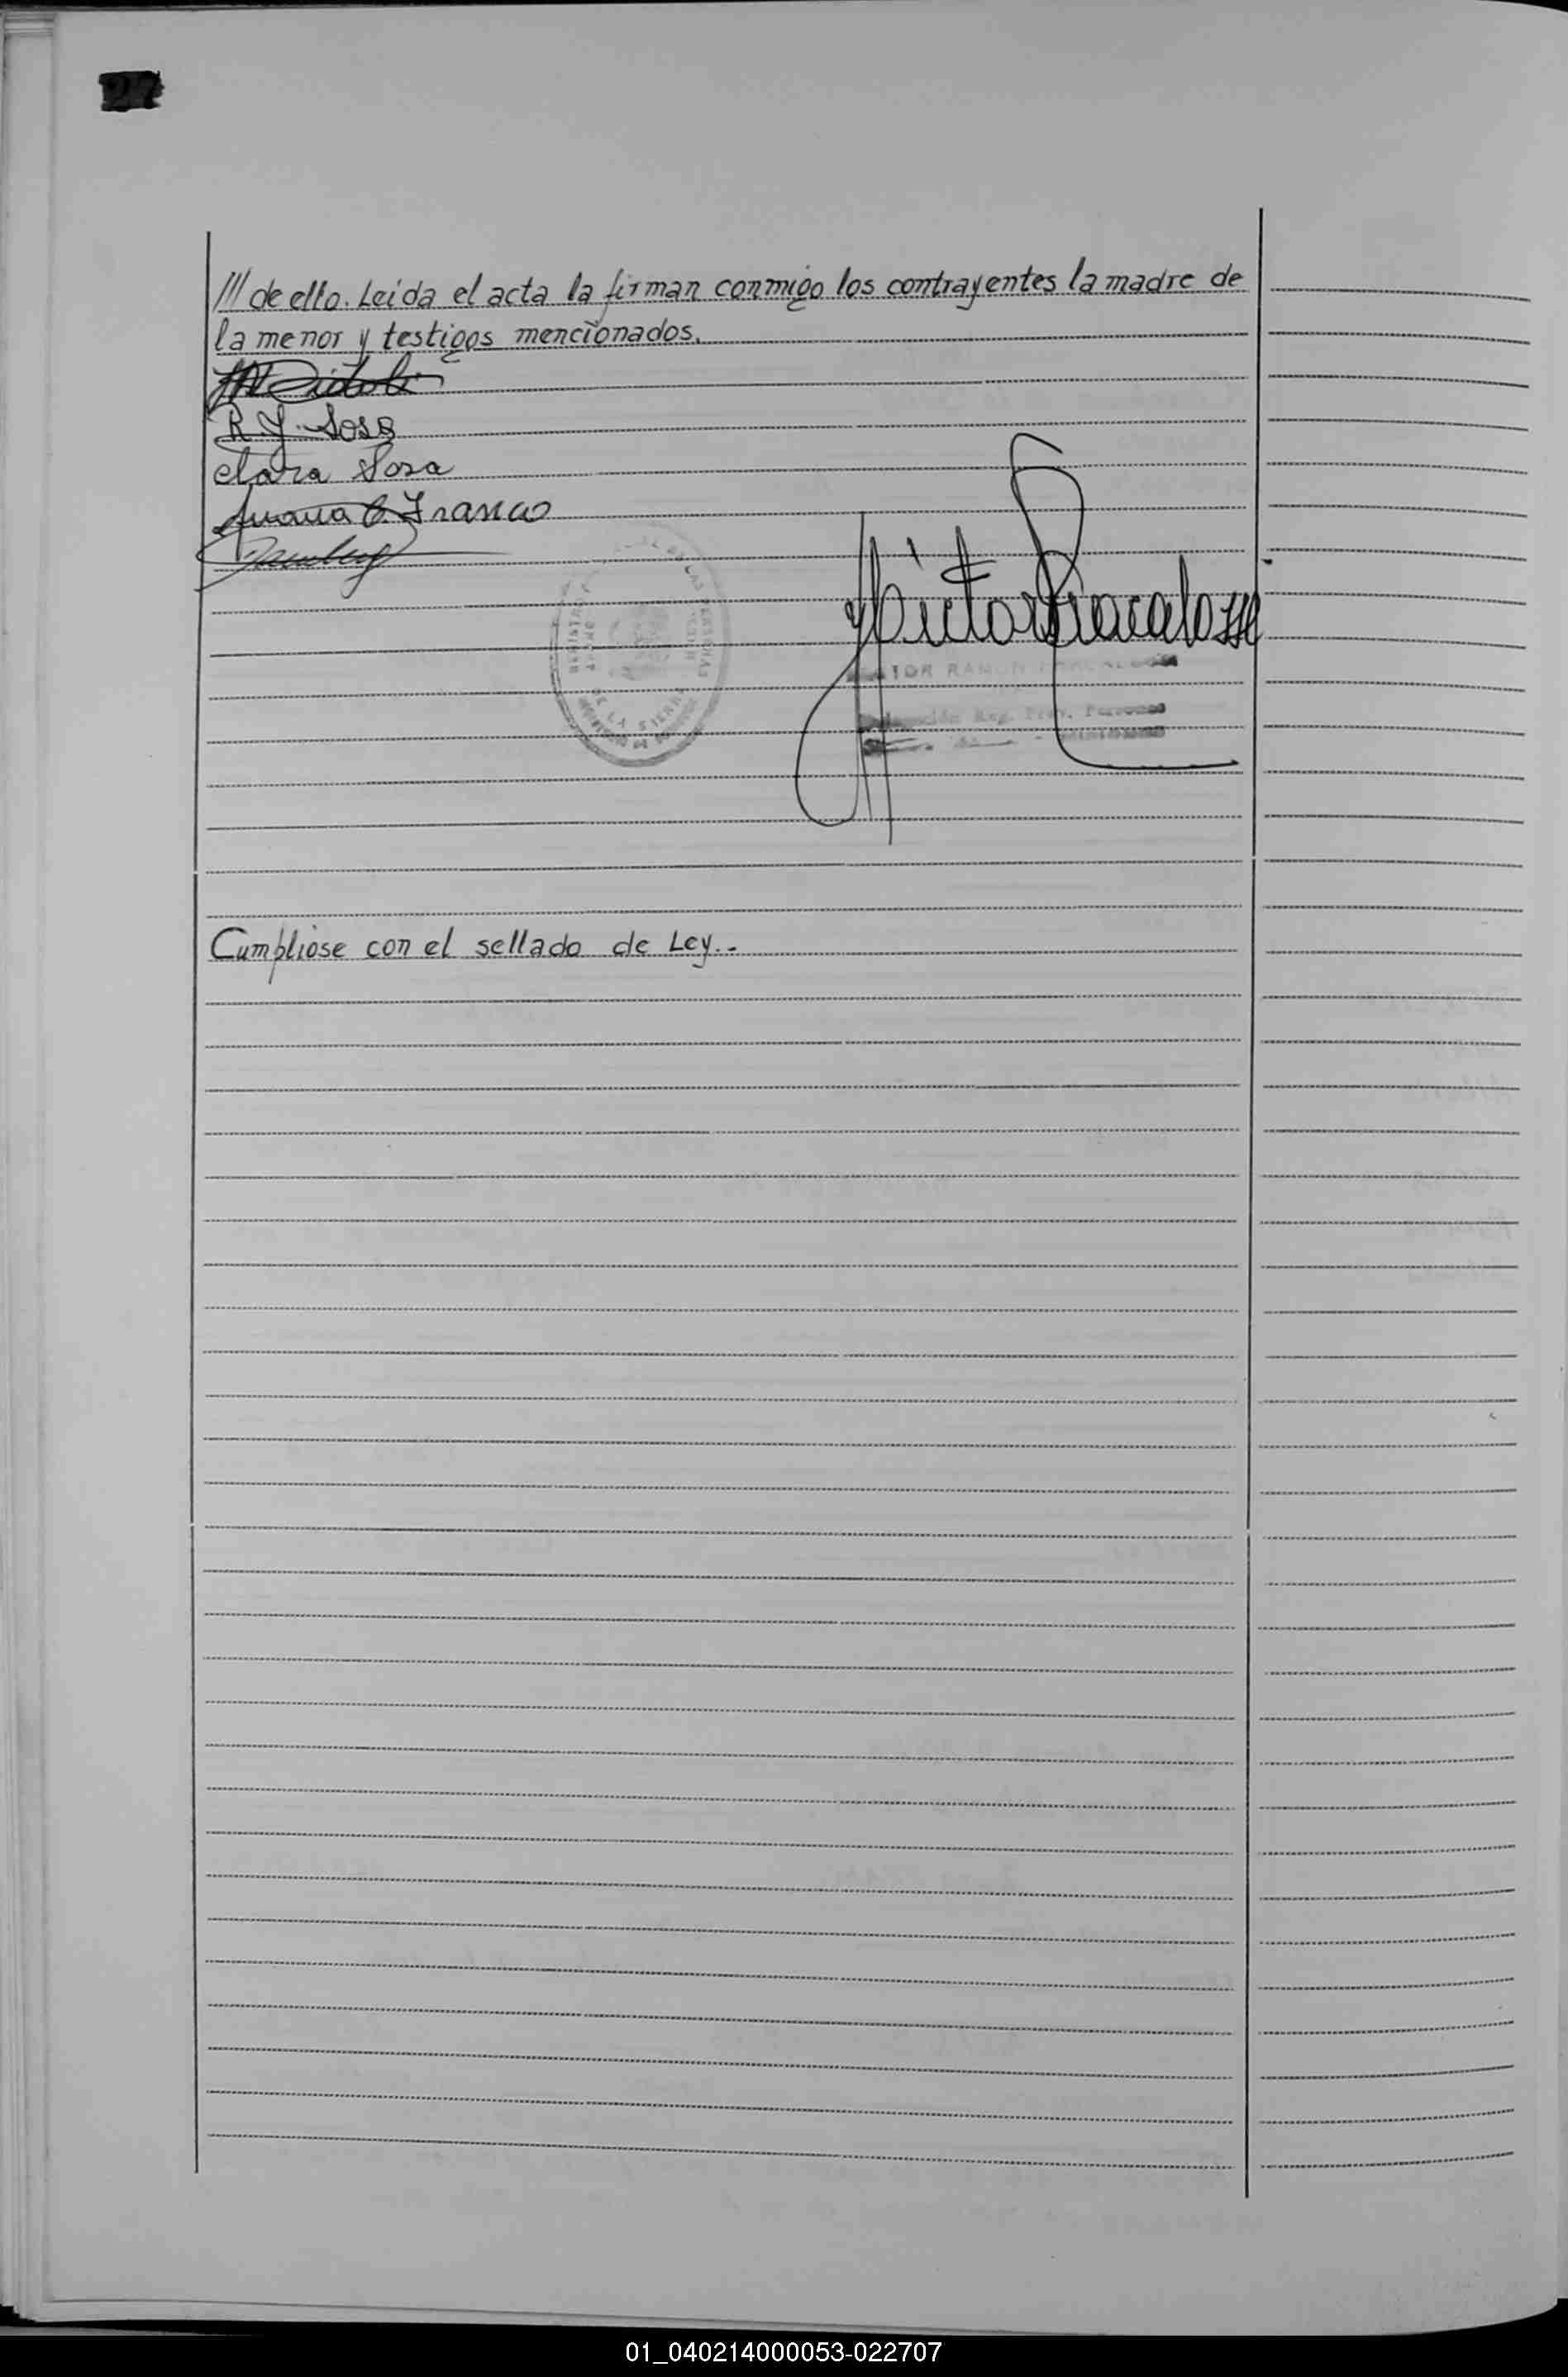 27
/// de ello. Leida el acta la firman conmigo los contrayentes la madre de
la menor y testigos mencionados.
R. Y. Sosa
Clara Sosa
Juana C. Franco
Victor
DE LA SIERRA
TOR RAMON
Reg. Prov. Personas
Cumpliose con el sellado de Ley.-
01_040214000053-022707